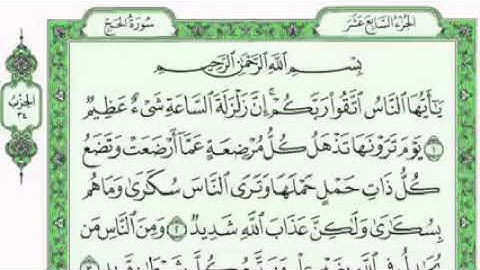 الجزء السابع عشر
سورة الحج
الحزب
٣٤
بِسْمِ ٱللَّهِ ٱلرَّحْمَٰنِ ٱلرَّحِيمِ
يَٰٓأَيُّهَا ٱلنَّاسُ ٱتَّقُوا۟ رَبَّكُمْ ۚ إِنَّ زَلْزَلَةَ ٱلسَّاعَةِ شَىْءٌ عَظِيمٌ
١ يَوْمَ تَرَوْنَهَا تَذْهَلُ كُلُّ مُرْضِعَةٍ عَمَّآ أَرْضَعَتْ وَتَضَعُ
كُلُّ ذَاتِ حَمْلٍ حَمْلَهَا وَتَرَى ٱلنَّاسَ سُكَٰرَىٰ وَمَا هُم
بِسُكَٰرَىٰ وَلَٰكِنَّ عَذَابَ ٱللَّهِ شَدِيدٌ ٢ وَمِنَ ٱلنَّاسِ مَن